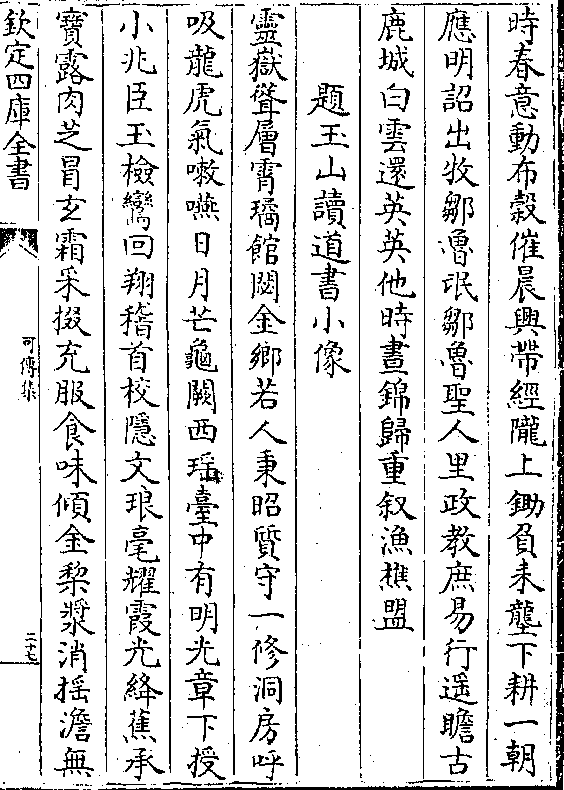 時春意動布穀催晨興帶經隴上鋤負耒壟下耕一朝
應明詔出牧鄒魯氓鄒魯聖人里政教庶易行遥瞻古
鹿城白雲還英英他時晝錦歸重叙漁樵盟
題玉山讀道書小像
靈嶽聳層霄璚館閟金鄉若人秉昭質守一修洞房呼
吸龍虎氣嗽嚥日月芒龜闕西瑶臺中有明光章下授
小兆臣玉檢鸞回翔稽首校隱文琅毫耀霞光絳蕉承
寶露肉芝冒玄霜采掇充服食味傾金棃漿消揺澹無
欽定四庫全書
可傳集
三十七